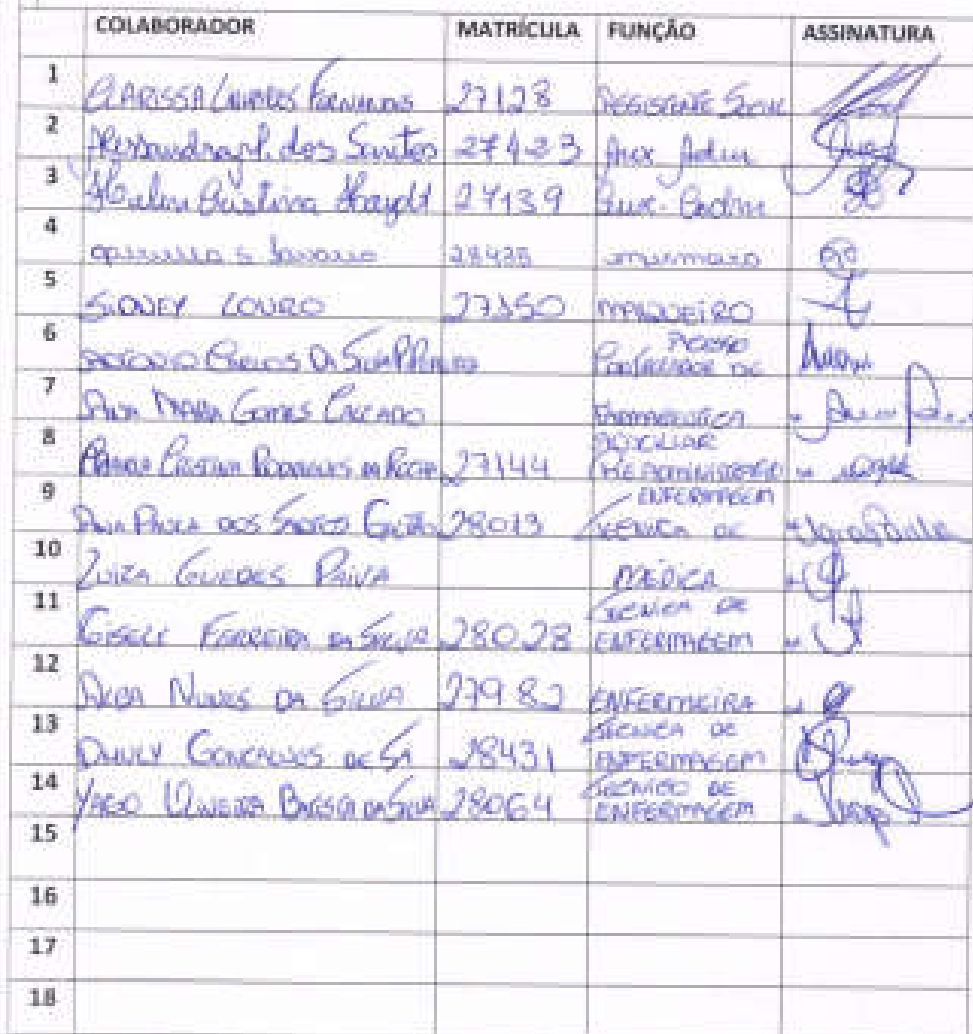 COLABORADOR MATRÍCULA FUNÇÃO ASSINATURA
1 CLARISSA FERNANDES 27128 ASSISTENTE SOCIAL
2 Alessandra dos Santos 27423 Aux Adm
3 Cristina Haydt 27139 Aux. Adm
4 28428
5 SIDNEY LOURO 27350 MAQUEIRO
6 ANTONIO CARLOS DA SILVA
7 ANA MARIA GOMES CALCADO FARMACEUTICA
8 CRISTINA RODRIGUES DA ROCHA 27144 AUXILIAR ADMINISTRATIVO
9 ANA PAULA DOS SANTOS 28013 TECNICA DE ENFERMAGEM
10 LUIZA GUEDES PAIVA MÉDICA
11 GISELE FERREIRA DA SILVA 28028 TECNICA DE ENFERMAGEM
12 ALBA NUNES DA SILVA 27982 ENFERMEIRA
13 GONCALVES DE SÁ 28431 TECNICA DE ENFERMAGEM
14 YAGO OLIVEIRA DA SILVA 28064 TECNICO DE ENFERMAGEM
15
16
17
18